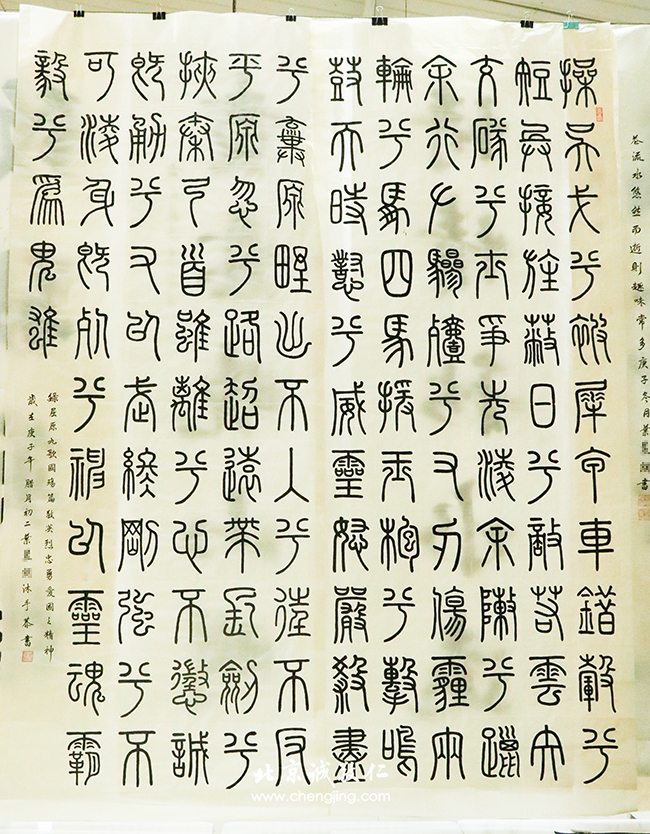 若流水悠然而逝則趣味常多庚子冬月葉鳳書
操吳戈兮被犀甲車錯轂兮
短兵接旌蔽日兮敵若雲矢
交墜兮士爭先凌余陣兮躐
余行左驂殪兮右刃傷霾兩
輪兮縶四馬援玉枹兮擊鳴
鼓天時懟兮威靈怒嚴殺盡
兮棄原野出不入兮往不反
平原忽兮路超遠帶長劍兮
挾秦弓首雖離兮心不懲誠
既勇兮又以武終剛強兮不
可凌身既死兮神以靈魂魄
毅兮為鬼雄
錄屈原九歌國殤篇敬英烈忠勇愛國之精神
歲在庚子年臘月初二葉鳳沐手恭書
北京诚敬仁
www.chengjing.com